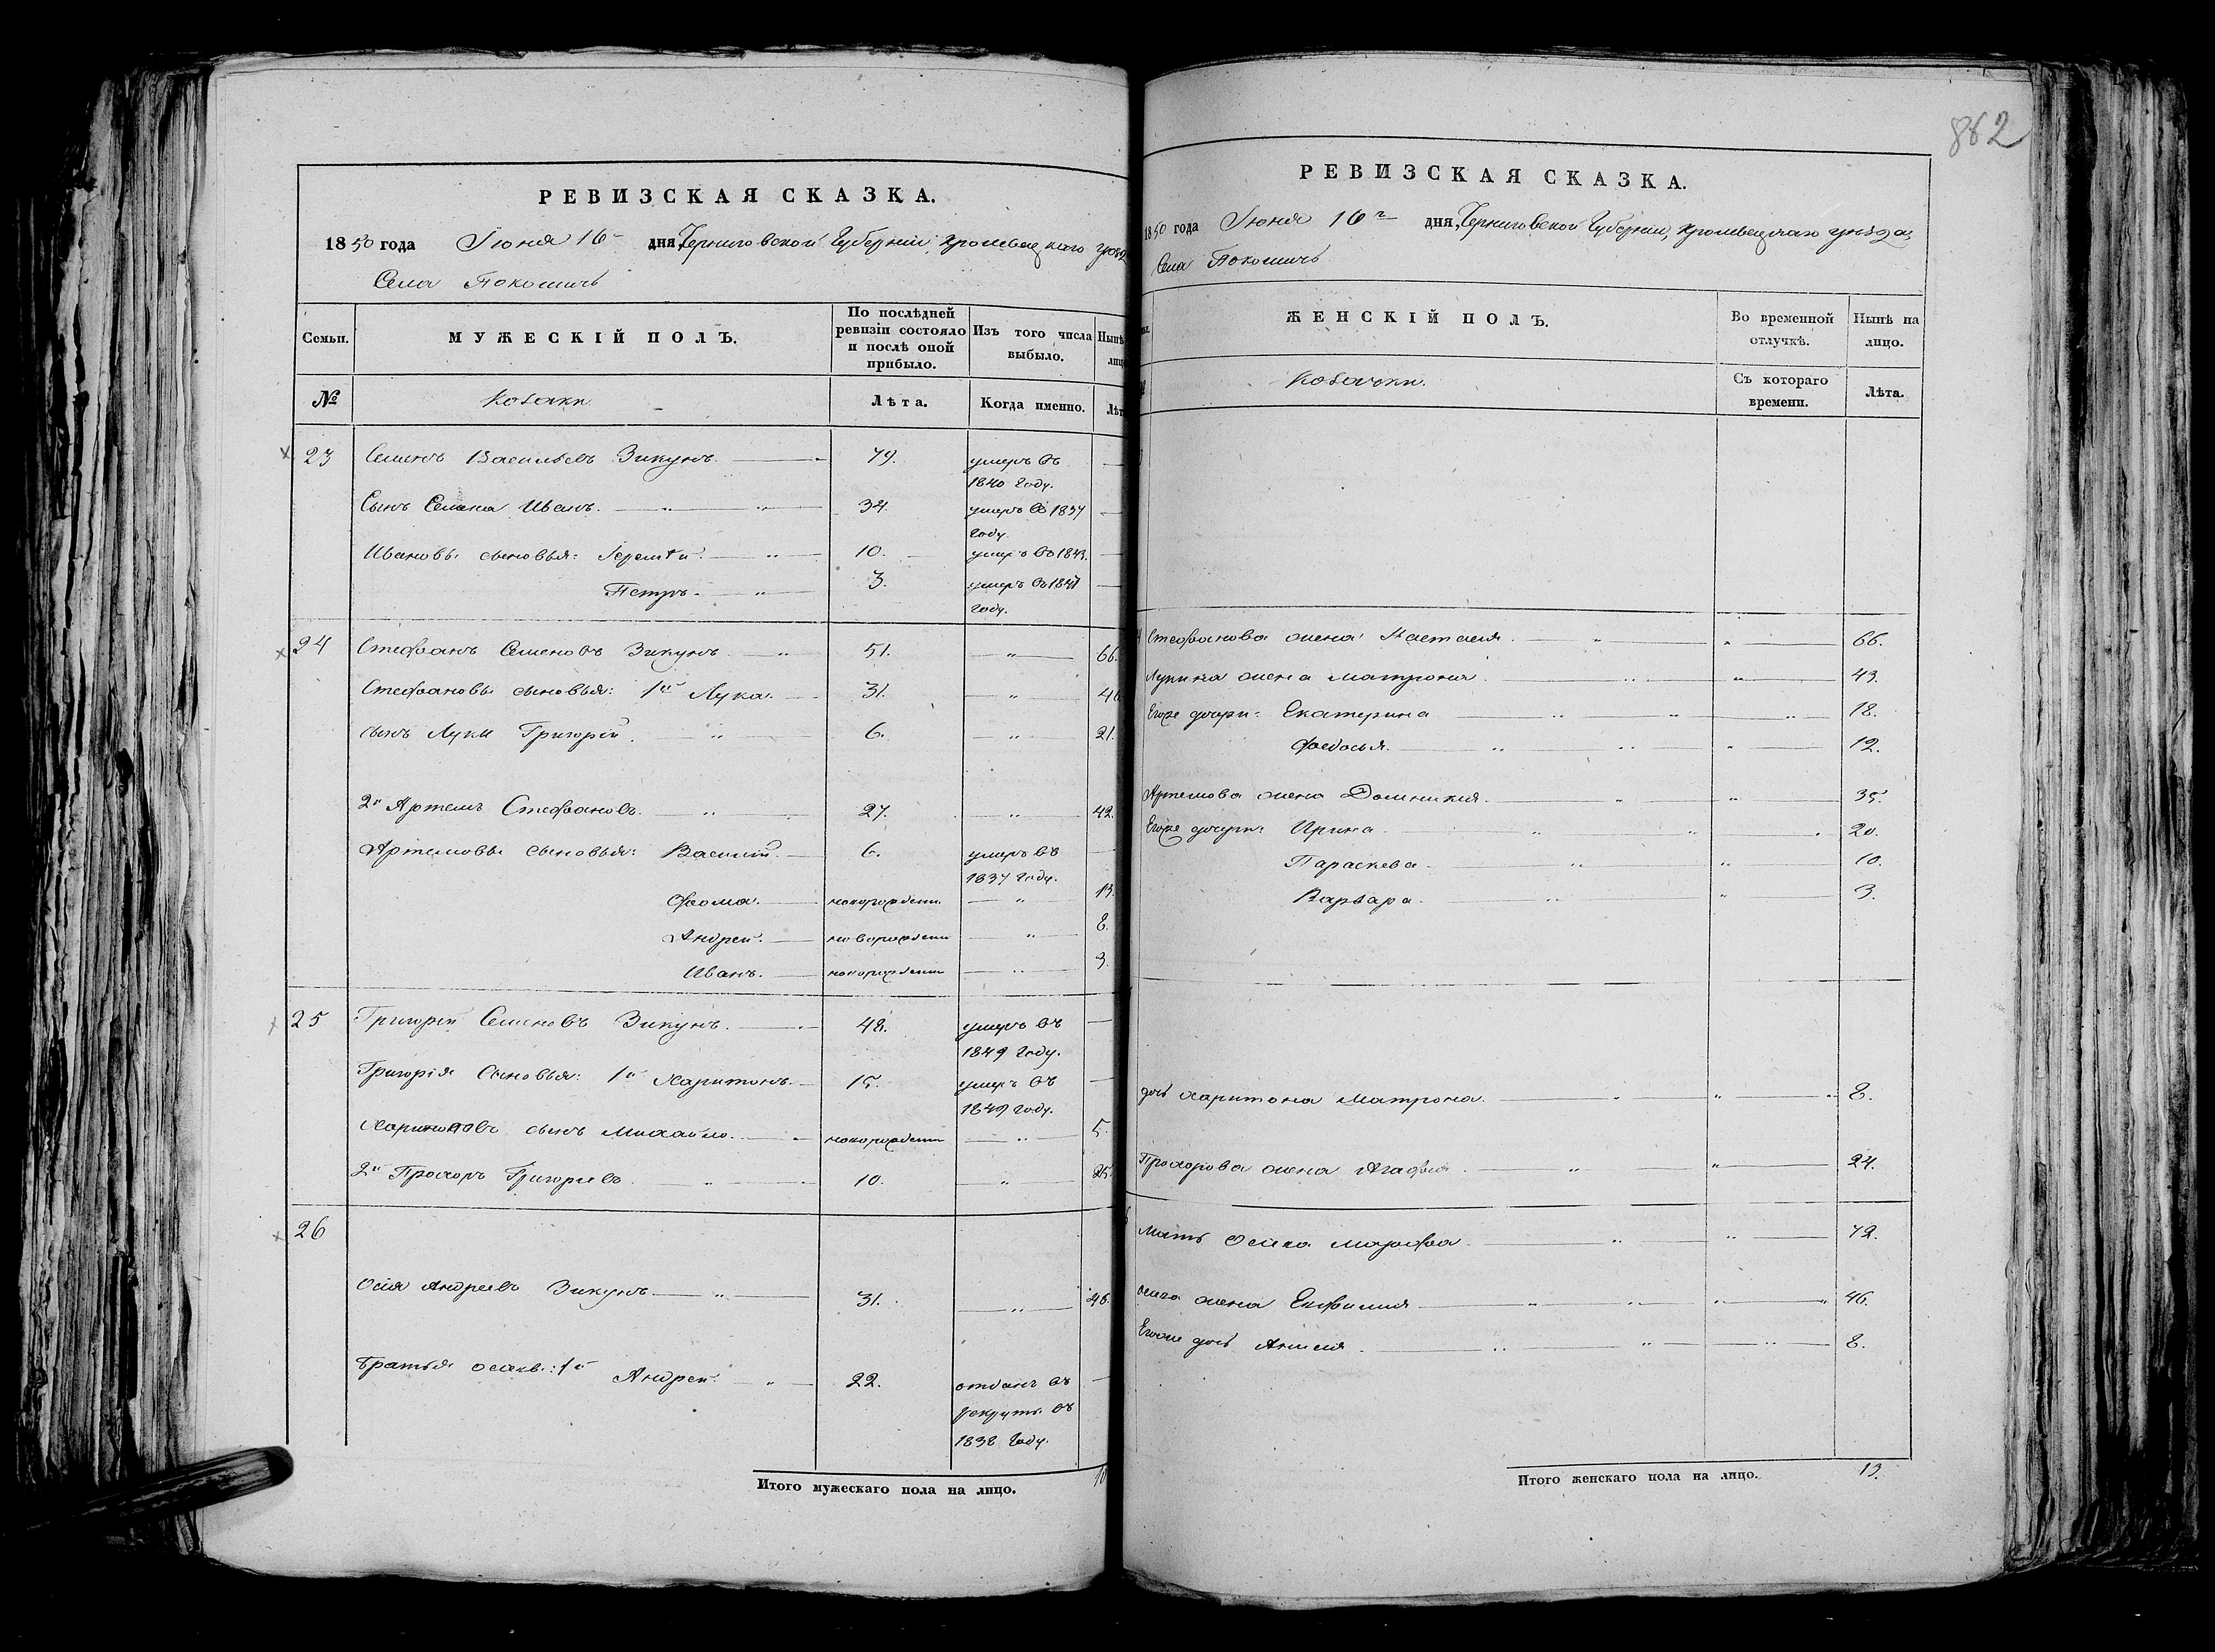 862
РЕВИЗСКАЯ СКАЗКА.
1850 года Іюня 16 дня, Черниговской Губерніи, Кролевецкаго уѣзд
Села Покошичь
Семьи. МУЖЕСКІЙ ПОЛЪ. По послѣдней ревизіи состояло и послѣ оной прибыло. Изъ того числа выбыло. Нынѣ
№ Козаки Лѣта. Когда именно. Лѣт
23 Семенъ Васильевъ Зикунъ. 79. умеръ въ
1840 году.
Сынъ Семена Иванъ. 34 умеръ въ 1837
году.
Ивановы сыновья: 10. умеръ въ 1843.
Петръ. 3. умеръ въ
году.
24 Стефанъ Семеновъ Зикунъ. 51. 66.
Стефановы сыновья: 1й Лука. 31. 46
сынъ Луки Григорій. 6. 21.
2й Артемъ Стефановъ. 27. 42.
Артемовы сыновья: Василій. 6. умеръ въ
1837 году.
Фома. новорожден. 13.
Андрей. новорожден 8.
Иванъ. новорожден 3.
25 Григорій Семеновъ Зикунъ. 48. умеръ въ
1849 году.
Григорія Сыновья: 1й Харитонъ. 15. умеръ въ
1849 году.
сынъ Михайло. новорожден 5.
2й Прохоръ Григорьевъ 10. 25.
26
Осія Андреевъ Зикунъ 31. 46.
Братья 1й Андрей. 22. отданъ въ
рекруты въ
1838 году.
Итого мужескаго пола на лицо. 10
РЕВИЗСКАЯ СКАЗКА.
1850 года Іюня 16г дня, Черниговской Губерніи, Кролевецкаго уѣзда,
Села Покошичь
ЖЕНСКІЙ ПОЛЪ. Во временной отлучкѣ. Нынѣ на лицо.
Козачки. Съ котораго времени. Лѣта.
Стефанова жена Настасія 66.
Лукина жена Матрона 43.
Егоже дочери: Екатерина 18.
Феодосья. 12.
Артемова жена Домникія. 35.
Егоже дочери: Ирина 20.
Параскева 10.
Варвара 3.
дочь Харитона Матрона. 8.
Прохорова жена Агафія 24.
Мать Осіева Марфа 72.
жена Евфимія 46.
Егоже дочь Анисія 8.
Итого женскаго пола на лицо. 13.